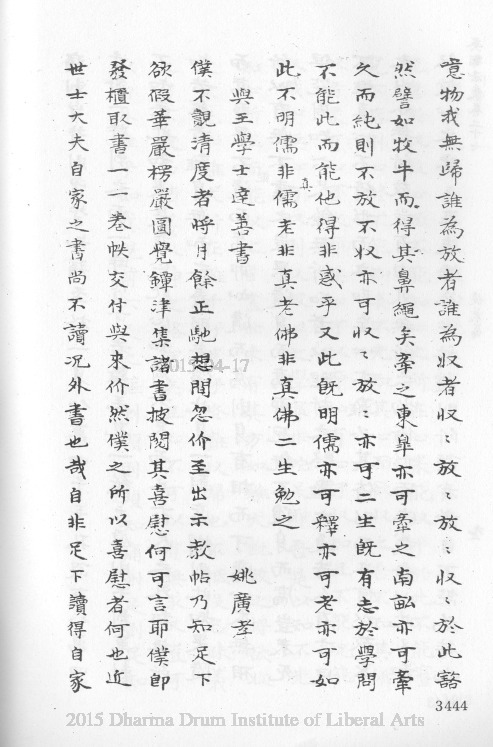 噫物我無歸誰為放者誰為収者収〻放放〻収於此豁
然譬如牧牛而得其鼻繩矣牽之東臯亦可牽之南畝亦可牽
久而純則不放不収亦可収〻放亦可二生既有志於學問
不能此而能他得非惑乎又此既明儒亦可釋亦可老亦可如
此不明儒非真儒老非真老佛非真佛二生勉之
與王學士達善書
姚廣孝
僕不覩清度者將月餘正馳想間忽价至出示教帖乃知足下
欲假華嚴楞嚴圓覺鐔津集諸書披閱其喜慰何可言耶僕即
發櫃取書一一卷帙交付與來价然僕之所以喜慰者何也近
世士大夫自家之書尚不讀況外書也哉自非足下讀得自家
3444
2015-04-17
2015 Dharma Drum Institute of Liberal Arts